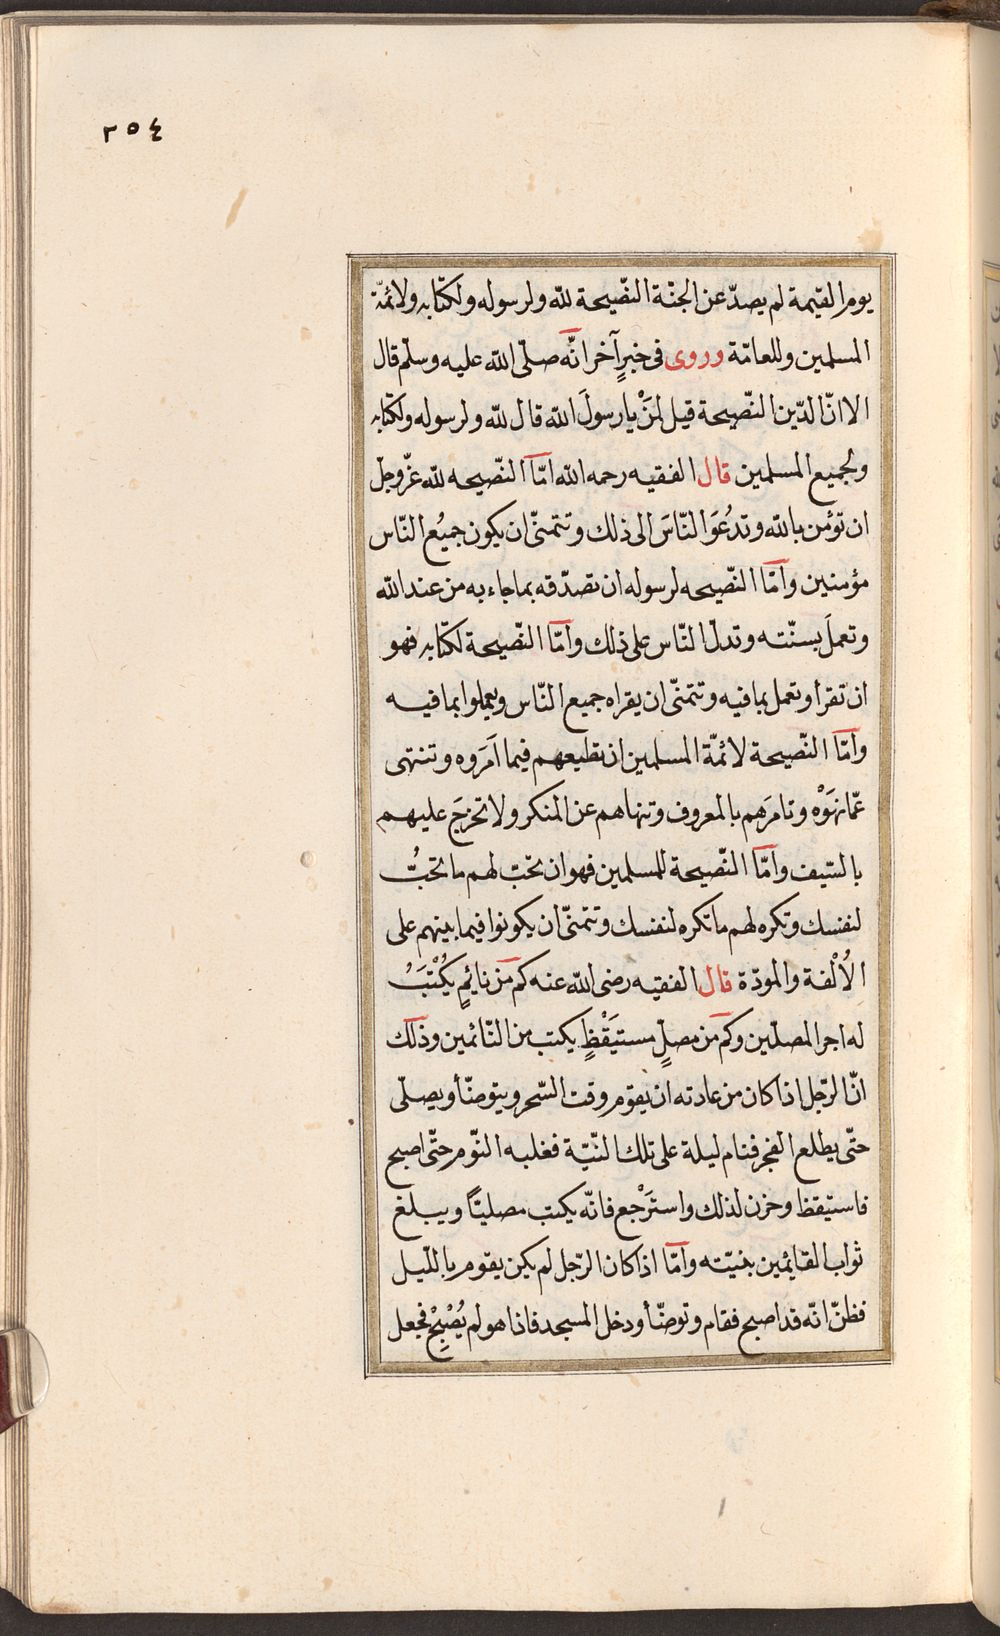 ٢٥٤
يوم القيمة لم يصدّ عن الجنّة النّصيحة للّه ولرسوله ولكتابه ولائمّة
المسلمين وللعامّة وروى فى خبرٍ آخر انّه صلّى اللّه عليه وسلّم قال
الا انّ الدّين النّصيحة قيل لمَنْ يا رسولَ اللّه قال للّه ولرسوله ولكتابه
ولجميع المسلمين قال الفقيه رحمه اللّه امّا النّصيحه للّه عزّ وجلّ
ان تؤمن باللّه وتدعُوَ النّاسَ الى ذلك وتتمنّى ان يكون جميعُ النّاس
مؤمنين وامّا النّصيحه لرسوله ان تصدّقه بما جاء به من عند اللّه
وتعملَ بسنّته وتدلّ النّاس على ذلك وامّا النّصيحة لكتابه فهو
ان تقرأ وتعمل بما فيه وتتمنّى ان يقراه جميع النّاس ويعملوا بما فيه
وامّا النّصيحة لائمّة المسلمين ان تطيعهم فيما اَمَروه وتنتهى
عمّا نهَوْه وتامرَهم بالمعروف وتنهاهم عن المنكر ولا تخرجَ عليهم
بالسّيف وامّا النّصيحة للمسلمين فهو ان تحبّ لهم ما تحبُّ
لنفسك وتكره لهم ما تكره لنفسك وتتمنّى ان يكونوا فيما بينهم على
الاُلْفة والمودّة قال الفقيه رضى اللّه عنه كم من نائمٍ يُكْتَبُ
له اجر المصلّين وكم من مصلٍّ مستيَقْظٍ يكتب من النّائمين وذلك
انّ الرّجل اذا كان من عادته ان يقوم وقت السّحر ويتوضّأ ويصلّى
حتّى يطلع الفجر فنام ليلة على تلك النّيّة فغلبه النّوم حتّى اصبح
فاستيقظ وحزن لذلك واستَرْجع فانّه يكتب مصليّاً ويبلغ
ثواب القايمين بنيّته وامّا اذا كان الرّجل لم يكن يقوم باللّيل
فظنّ انّه قد اصبح فقام وتوضّأ ودخل المسجد فاذا هو لم يُصْبِحْ فجعل